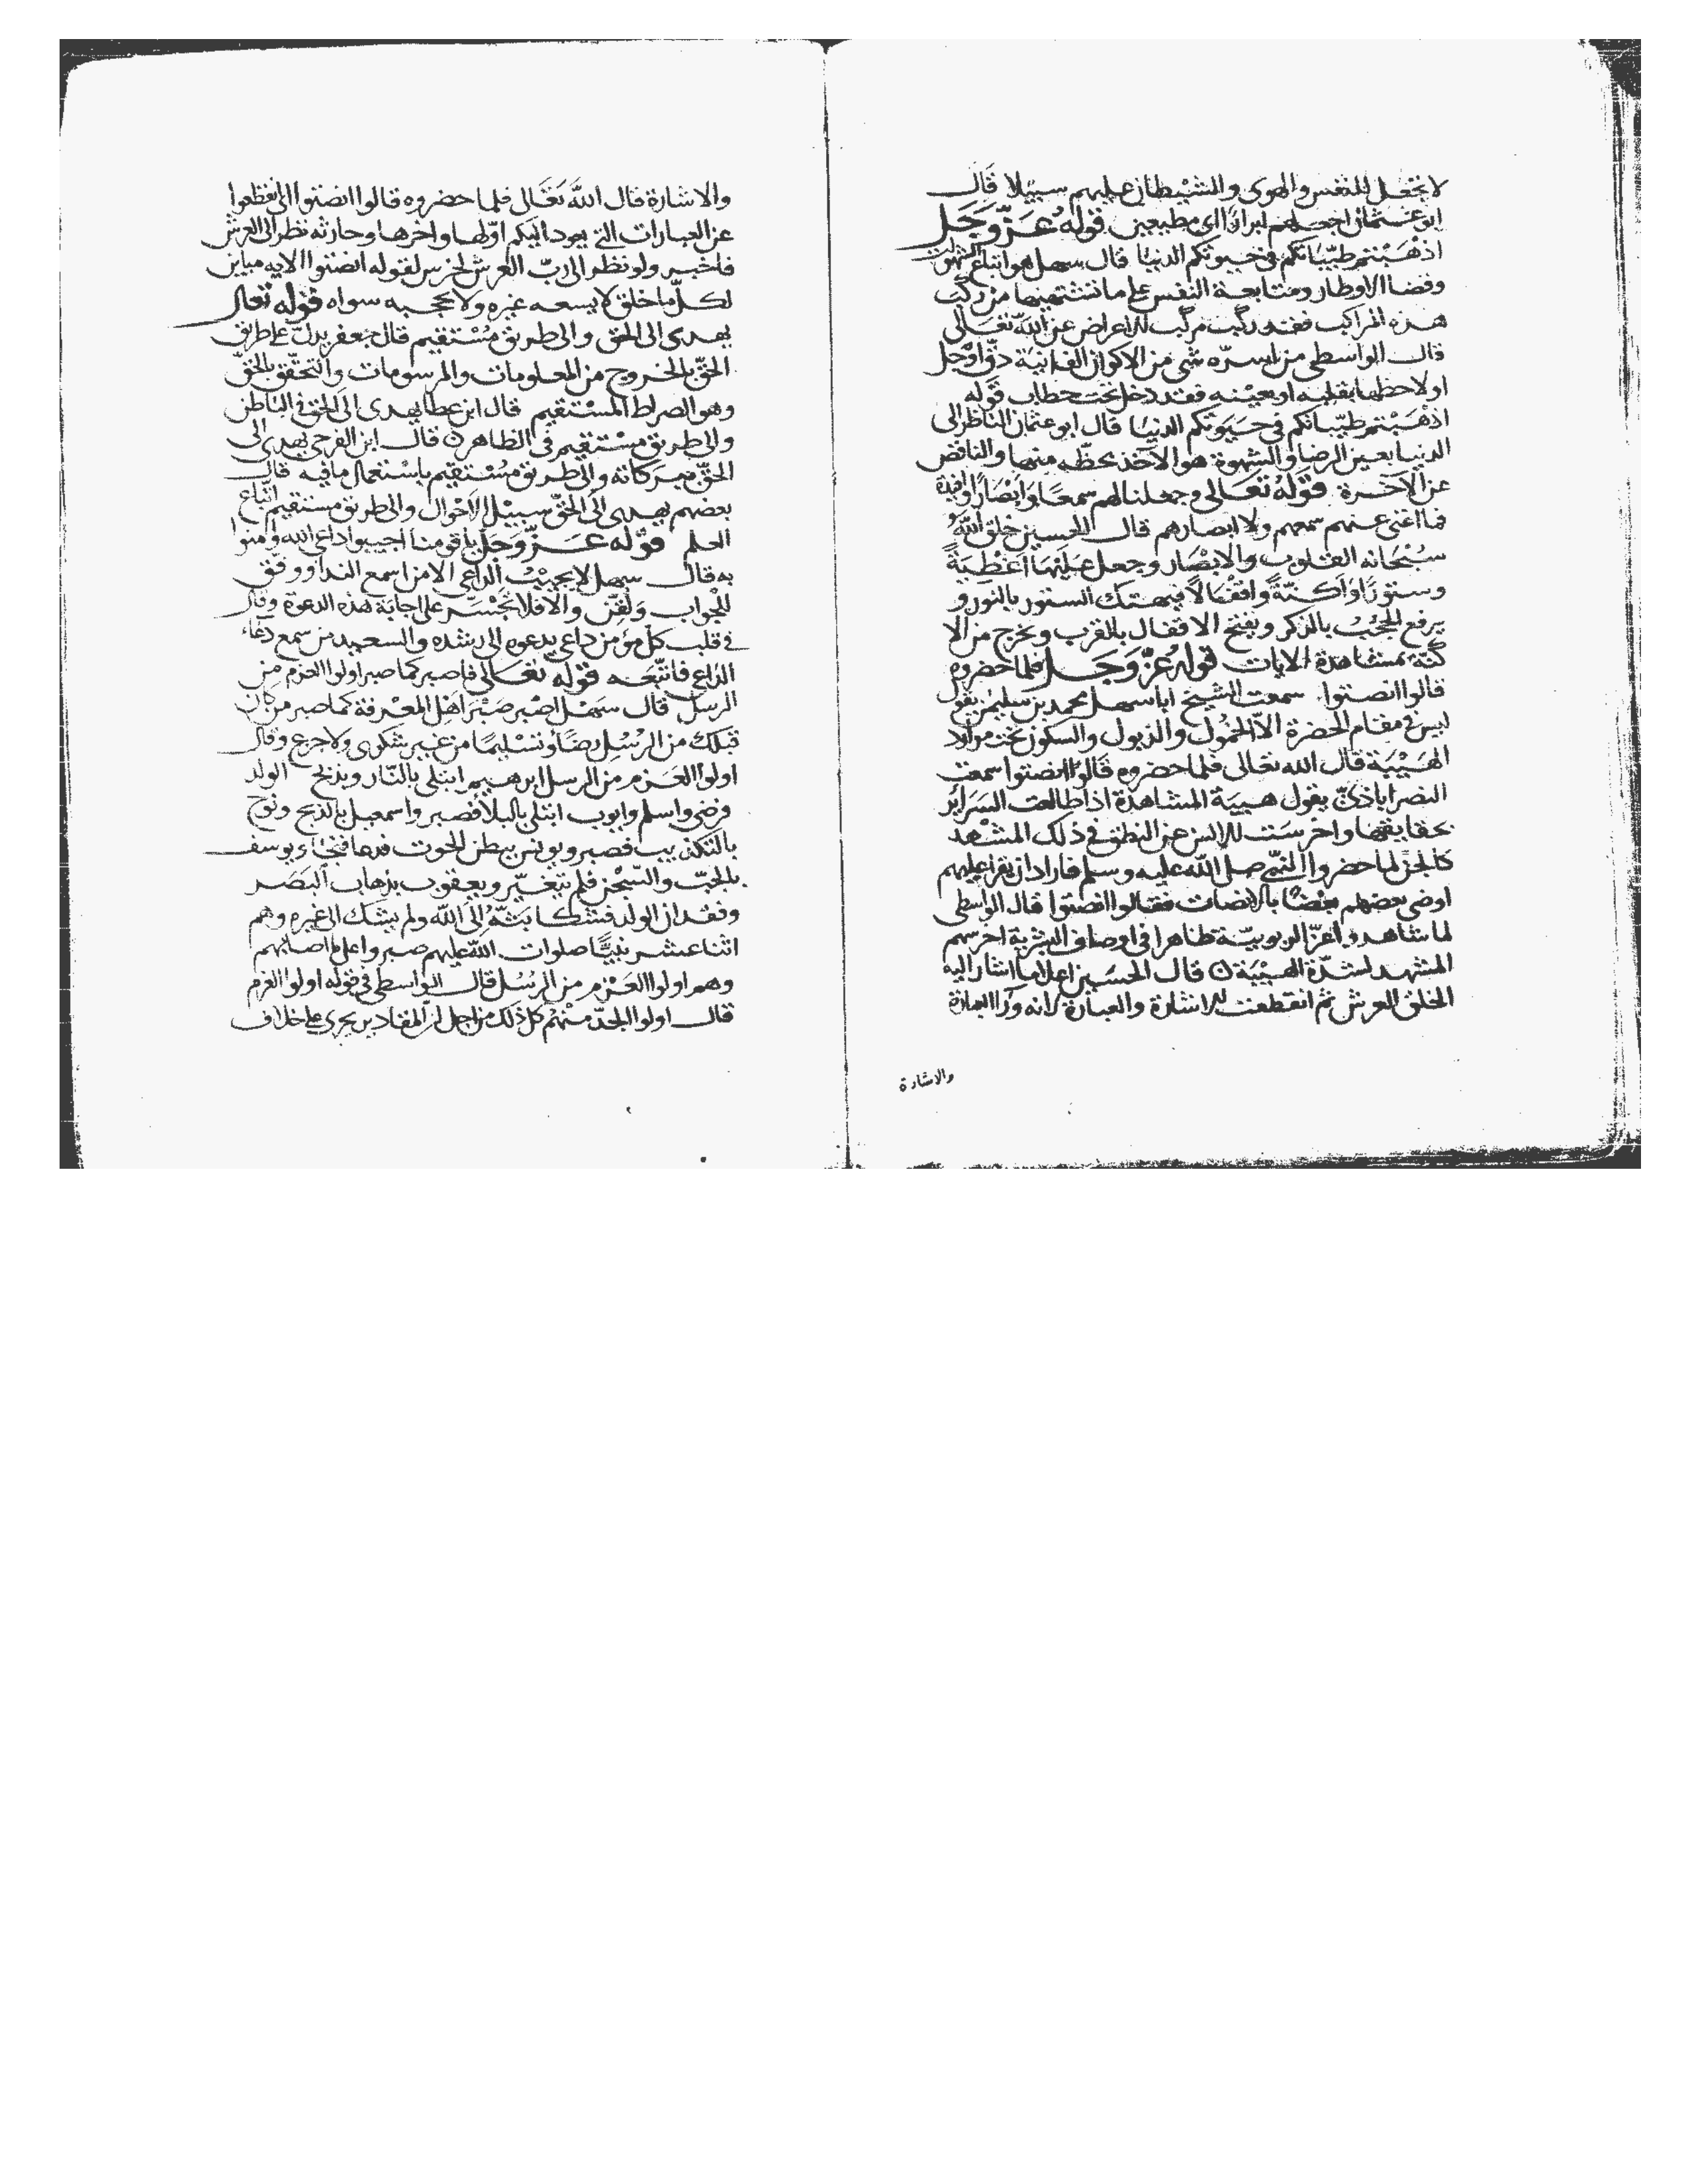 لا تجعل للنفس والهوى والشيطان عليهم سبيلا قال
ابو عثمان اجعلهم ابرارا اى مطيعين قوله عز وجل
اذهبتم طيباتكم فى حيوتكم الدنيا قال سهل هو اتباع الشهوات
وقضا الاوطار ومتابعة النفس على ما تشتهيها من ركب
هذه المراكب فقد ركب مركب الاعراض عن الله تعالى
قال الواسطى من اسره شى من الاكوان الفانية دق او جل
او لاحظها بقلبه او بعينه فقد دخل تحت خطاب قوله
اذهبتم طيباتكم فى حيوتكم الدنيا قال ابو عثمان الناظر الى
الدنيا بعين الرضا والشهوة هو الآخذ بحظه منها والناقص
عن الآخرة قوله تعالى وجعلنا لهم سمعا وابصارا وافئدة
فما اغنى عنهم سمعهم ولا ابصارهم قال الحسين خلق الله
سبحانه القلوب والابصار وجعل عليها اغطية
وستورا واكنة واقفالا فيهتك الستور بالنور و
يرفع الحجب بالذكر ويفتح الاقفال بالقرب ويخرج من الا
كنة بمشاهدة الايات قوله عز وجل فلما حضروه
قالوا انصتوا سمعت الشيخ ابا سهل محمد بن سليمن يقول
ليس فى مقام الحضرة الا الخمول والذبول والسكون تحت موارد
الهيبة قال الله تعالى فلما حضروه قالوا انصتوا سمعت
النصراباذى يقول هيبة المشاهدة اذا طالعت السراير
بحقايقها واخرست الالسن عن النطق فى ذلك المشهد
كالجن لما حضروا النبى صلى الله عليه وسلم فاراد ان يقرا عليهم
اوصى بعضهم بعضا بالانصات فقالوا انصتوا قال الواسطى
لما شاهدوا عز الربوبية ظاهرا فى اوصاف البشرية اخرسهم
المشهد لشدة الهيبة ن قال الحسين اعلا ما اشار اليه
الخلق العرش ثم انقطعت الاشارة والعبارة لانه ورا العبارة
والاشارة
والاشارة قال الله تعالى فلما حضروه قالوا انصتوا اى انقطعوا
عن العبارات التى يعود اليكم اولها واخرها وحارثه نظر الى العرش
فاخبر ولو نظر الى رب العرش لخرس لقوله انصتوا لانه مباين
لكل ما خلق لا يسعه غيره ولا يحجبه سواه قوله تعالى
يهدى الى الحق والى طريق مستقيم قال جعفر يدل على طريق
الحق بالخروج من المعلومات والمرسومات والتحقق بالحق
وهو الصراط المستقيم قال ابن عطا يهدى الى الحق فى الباطن
والى طريق مستقيم فى الظاهر ن قال ابن الفرجى يهدى الى
الحق ببركاته والى طريق مستقيم باستعمال ما فيه قال
بعضهم يهدى الى الحق سبيل الاحوال والى طريق مستقيم اتباع
العلم قوله عز وجل يا قومنا اجيبوا داعى الله وامنوا
به قال سهل لا يجيب الداعى الا من اسمع الندا ووفق
للجواب ولقن والا فلا يجسر على اجابة هذه الدعوة وقال
فى قلب كل مؤمن داعى يدعوه الى رشده والسعيد من سمع دعاء
الداعى فاتبعه قوله تعالى فاصبر كما صبر اولوا العزم من
الرسل قال سهل اصبر صبر اهل المعرفة كما صبر من كان
قبلك من الرسل رضا وتسليما من غير شكوى ولا جزع وقال
اولوا العزم من الرسل ابرهيم ابتلى بالنار وبذبح الولد
فرضى واسلم وايوب ابتلى بالبلا فصبر واسمعيل بالذبح ونوح
بالتكذيب فصبر ويونس ببطن الحوت فدعا ويوسف
بالجب والسجن فلم يتغير ويعقوب بذهاب البصر
وفقدان الولد فشكا بثه الى الله ولم يشك الى غيره وهم
اثنا عشر نبيا صلوات الله عليهم صبروا على ما اصابهم
وهم اولوا العزم من الرسل قال الواسطى فى قوله اولوا العزم
قال اولوا الجد منهم كل ذلك من اجل ان المقادير يجرى على خلاف